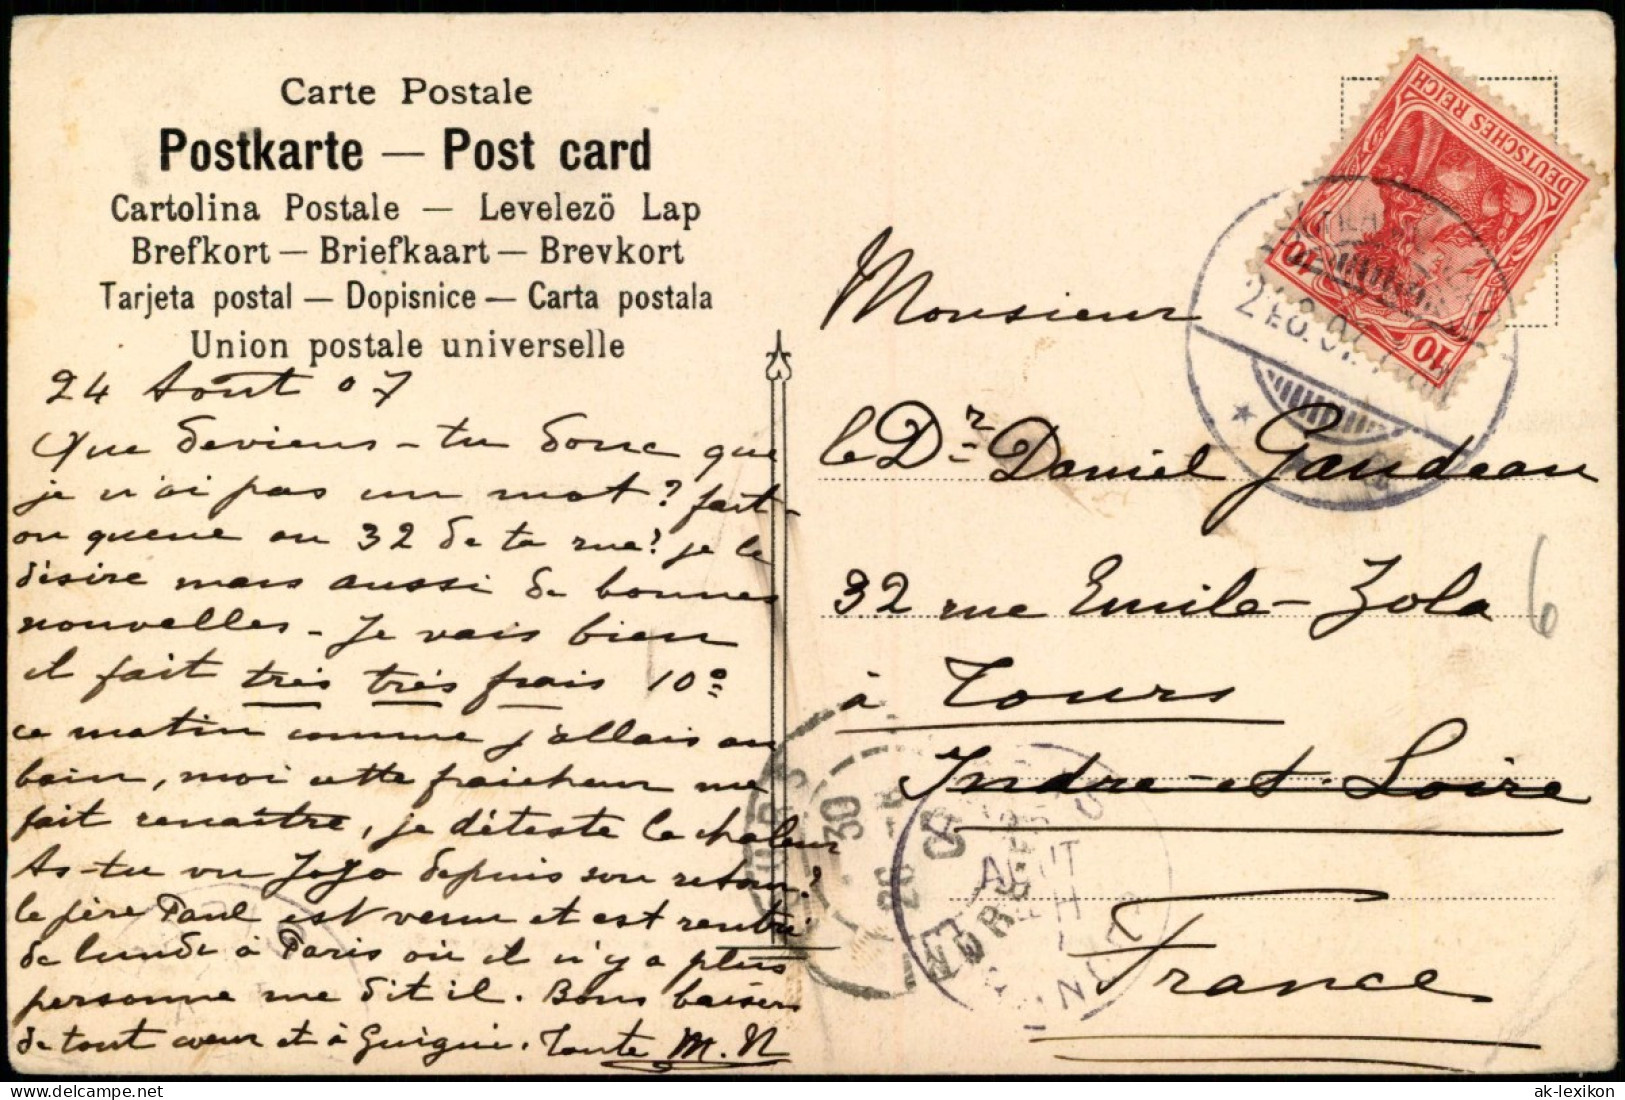 Carte Postale
Postkarte — Post card
Cartolina Postale — Levelezö Lap
Brefkort — Briefkaart — Brevkort
Tarjeta postal — Dopisnice — Carta postala
Union postale universelle
24 Aout 07
Que deviens-tu donc que
je n'ai pas un mot? fait-
on queue au 32 de ta rue? je le
désire mais aussi de bonnes
nouvelles - Je vais bien
il fait très très frais 10°
ce matin comme j'allais au
bain, moi cette fraicheur me
fait renaître, je déteste la chaleur
As-tu vu Jojo depuis son retour?
le père Paul est venu et est rentré
de lundi à Paris où il n'y a plus
personne me dit il. Bons baisers
de tout cœur et à Guigui. Tante M. N
DEUTSCHES REICH
10 10
Monsieur
le Dr Daniel Gaudeau
32 rue Emile-Zola
à Tours
Indre-et-Loire
France
6
TOURS
30
26
delcampe.net
ak-lexikon